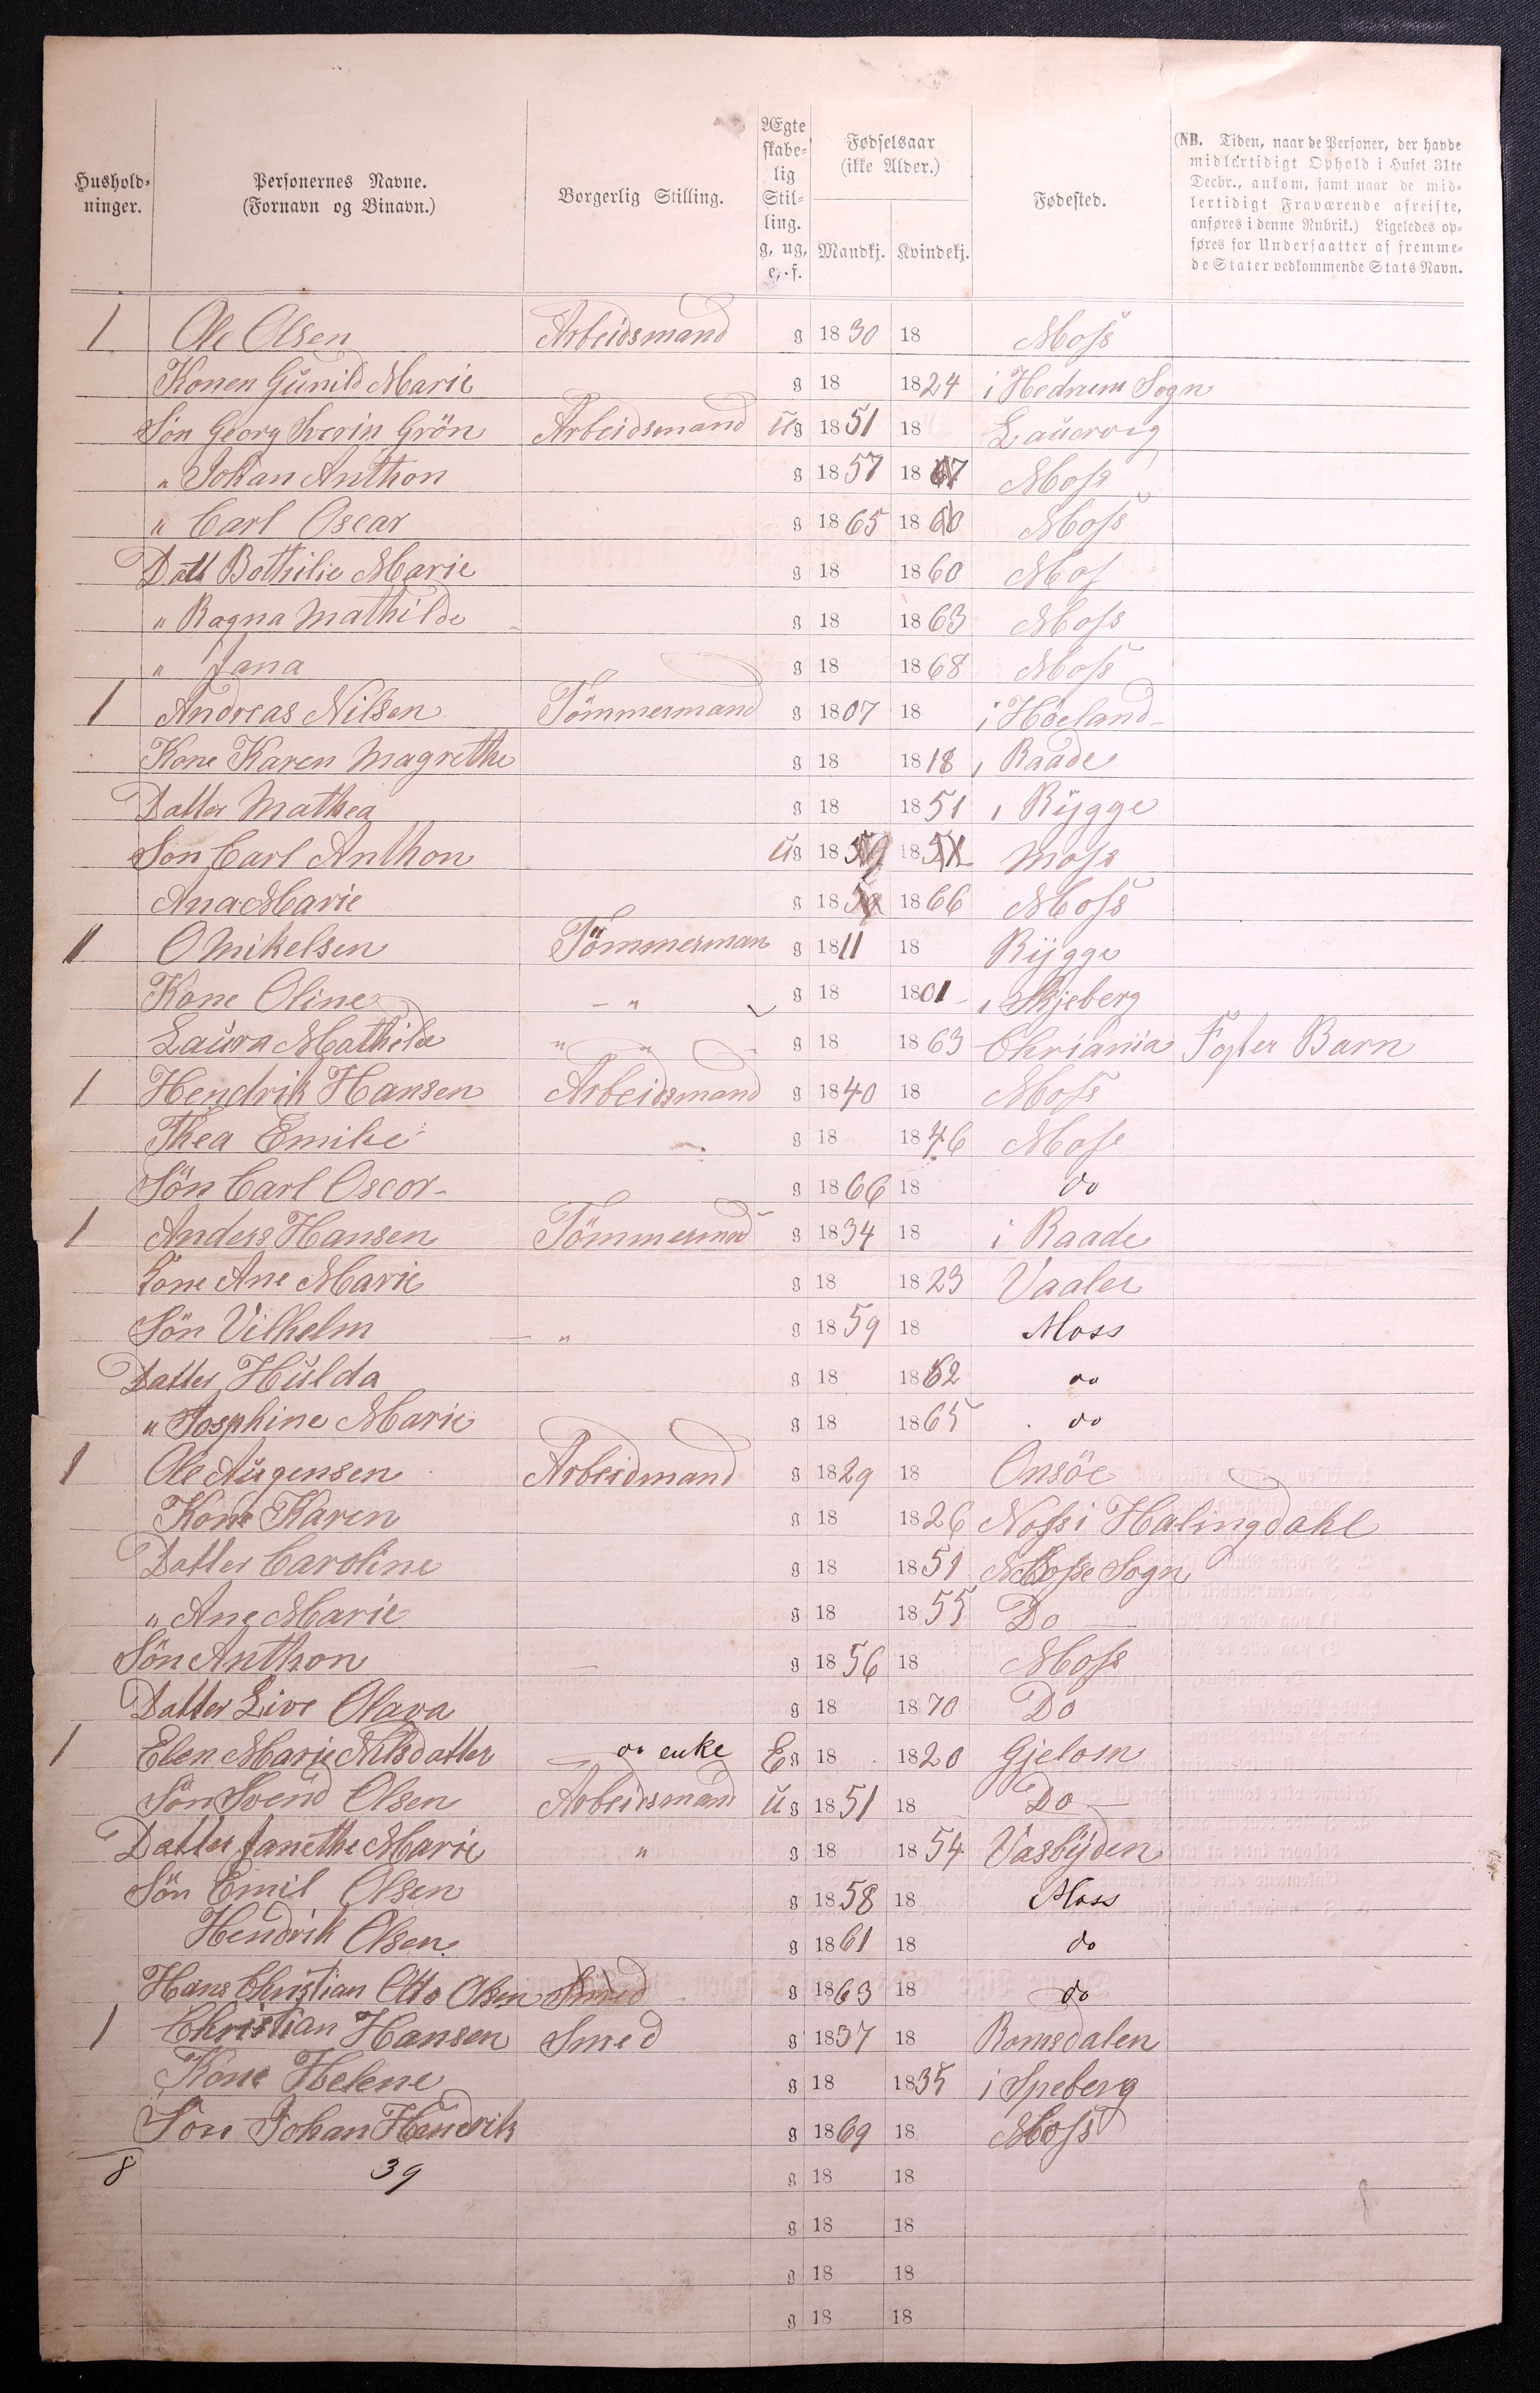 Hushold-
ninger.
Personernes Navne.
(Fornavn og Binavn.)
Borgerlig Stilling.
Ægte
skabe-
lig
Stil-
ling.
g, ug,
e, f.
Fødselsaar
(ikke Alder.)
Mandkj. Kvindekj.
Fødested.
(NB. Tiden, naar de Personer, der havde
midlertidigt Ophold i Huset 31te
Decbr., ankom, samt naar de mid-
lertidigt Fraværende afreiste,
anføres i denne Rubrik.) Ligeledes op-
føres for Undersaatter af fremme-
de Stater vedkommende Stats Navn.
1 Ole Olsen Arbeidsmand g 1830 18 Moss
Konen Gunild Marie g 18 1824 i Hedrum Sogn
Søn Georg Severin Grön Arbeidsmand ug 1851 18 Laurvig
" Johan Anthon g 1857 18 Moss
" Carl Oscar g 1865 18 Moss
Datt Bothilie Marie g 18 1860 Mos
" Ragna Mathilde g 18 1863 Moss
" Jana g 18 1868 Moss
1 Andreas Nilsen Tömmermand g 1807 18 i Höeland
Kone Karen Magrethe g 18 1818 i Raade
Datter Mathea g 18 1851 i Rygge
Son Carl Anthon ug 1859 18 Moss
Ana Marie g 18 1866 Moss
1 O Mikelsen Tömmerman g 1811 18 Rygge
Kone Oline " g 18 1801 i Skjeberg
Laura Mathilde " " g 18 1863 Chriania Foster Barn
1 Hendrik Hansen Arbeidsmand g 1840 18 Moss
Thea Emilie g 18 1846 Moss
Sön Carl Oscor g 1866 18 do
1 Anders Hansen Tömmermnd g 1834 18 i Raade
Kone Ane Marie g 18 1823 Vaaler
Sön Vilhelm " g 1859 18 Moss
Datter Hulda g 18 1862 do
" Josphine Marie g 18 1865 do
1 Ole Augensen Arbeidmand g 1829 18 Onsöe
Kone Karen g 18 1826 Noss i Halingdahl
Datter Caroline g 18 1851 Mosse Sogn
" Ane Marie g 18 1855 Do
Sön Anthon g 1856 18 Moss
Datter Live Olava g 18 1870 Do
1 Elen Marie Nilsdatter do enke Eg 18 1820 Gjelom
Sön Svend Olsen Arbeidsmand ug 1851 18 Do
Datter Janethe Marie " g 18 1854 Vasbyden
Sön Emil Olsen g 1858 18 Moss
Hendrik Olsen g 1861 18 do
Hans Christian Otto Olsen Smed g 1863 18 do
1 Christian Hansen Smed g 1837 18 Romsdalen
Kone Helene g 18 1835 i Speberg
Son Johan Hendrik g 1869 18 Moss
8 39 g 18 18
g 18 18
g 18 18
g 18 18